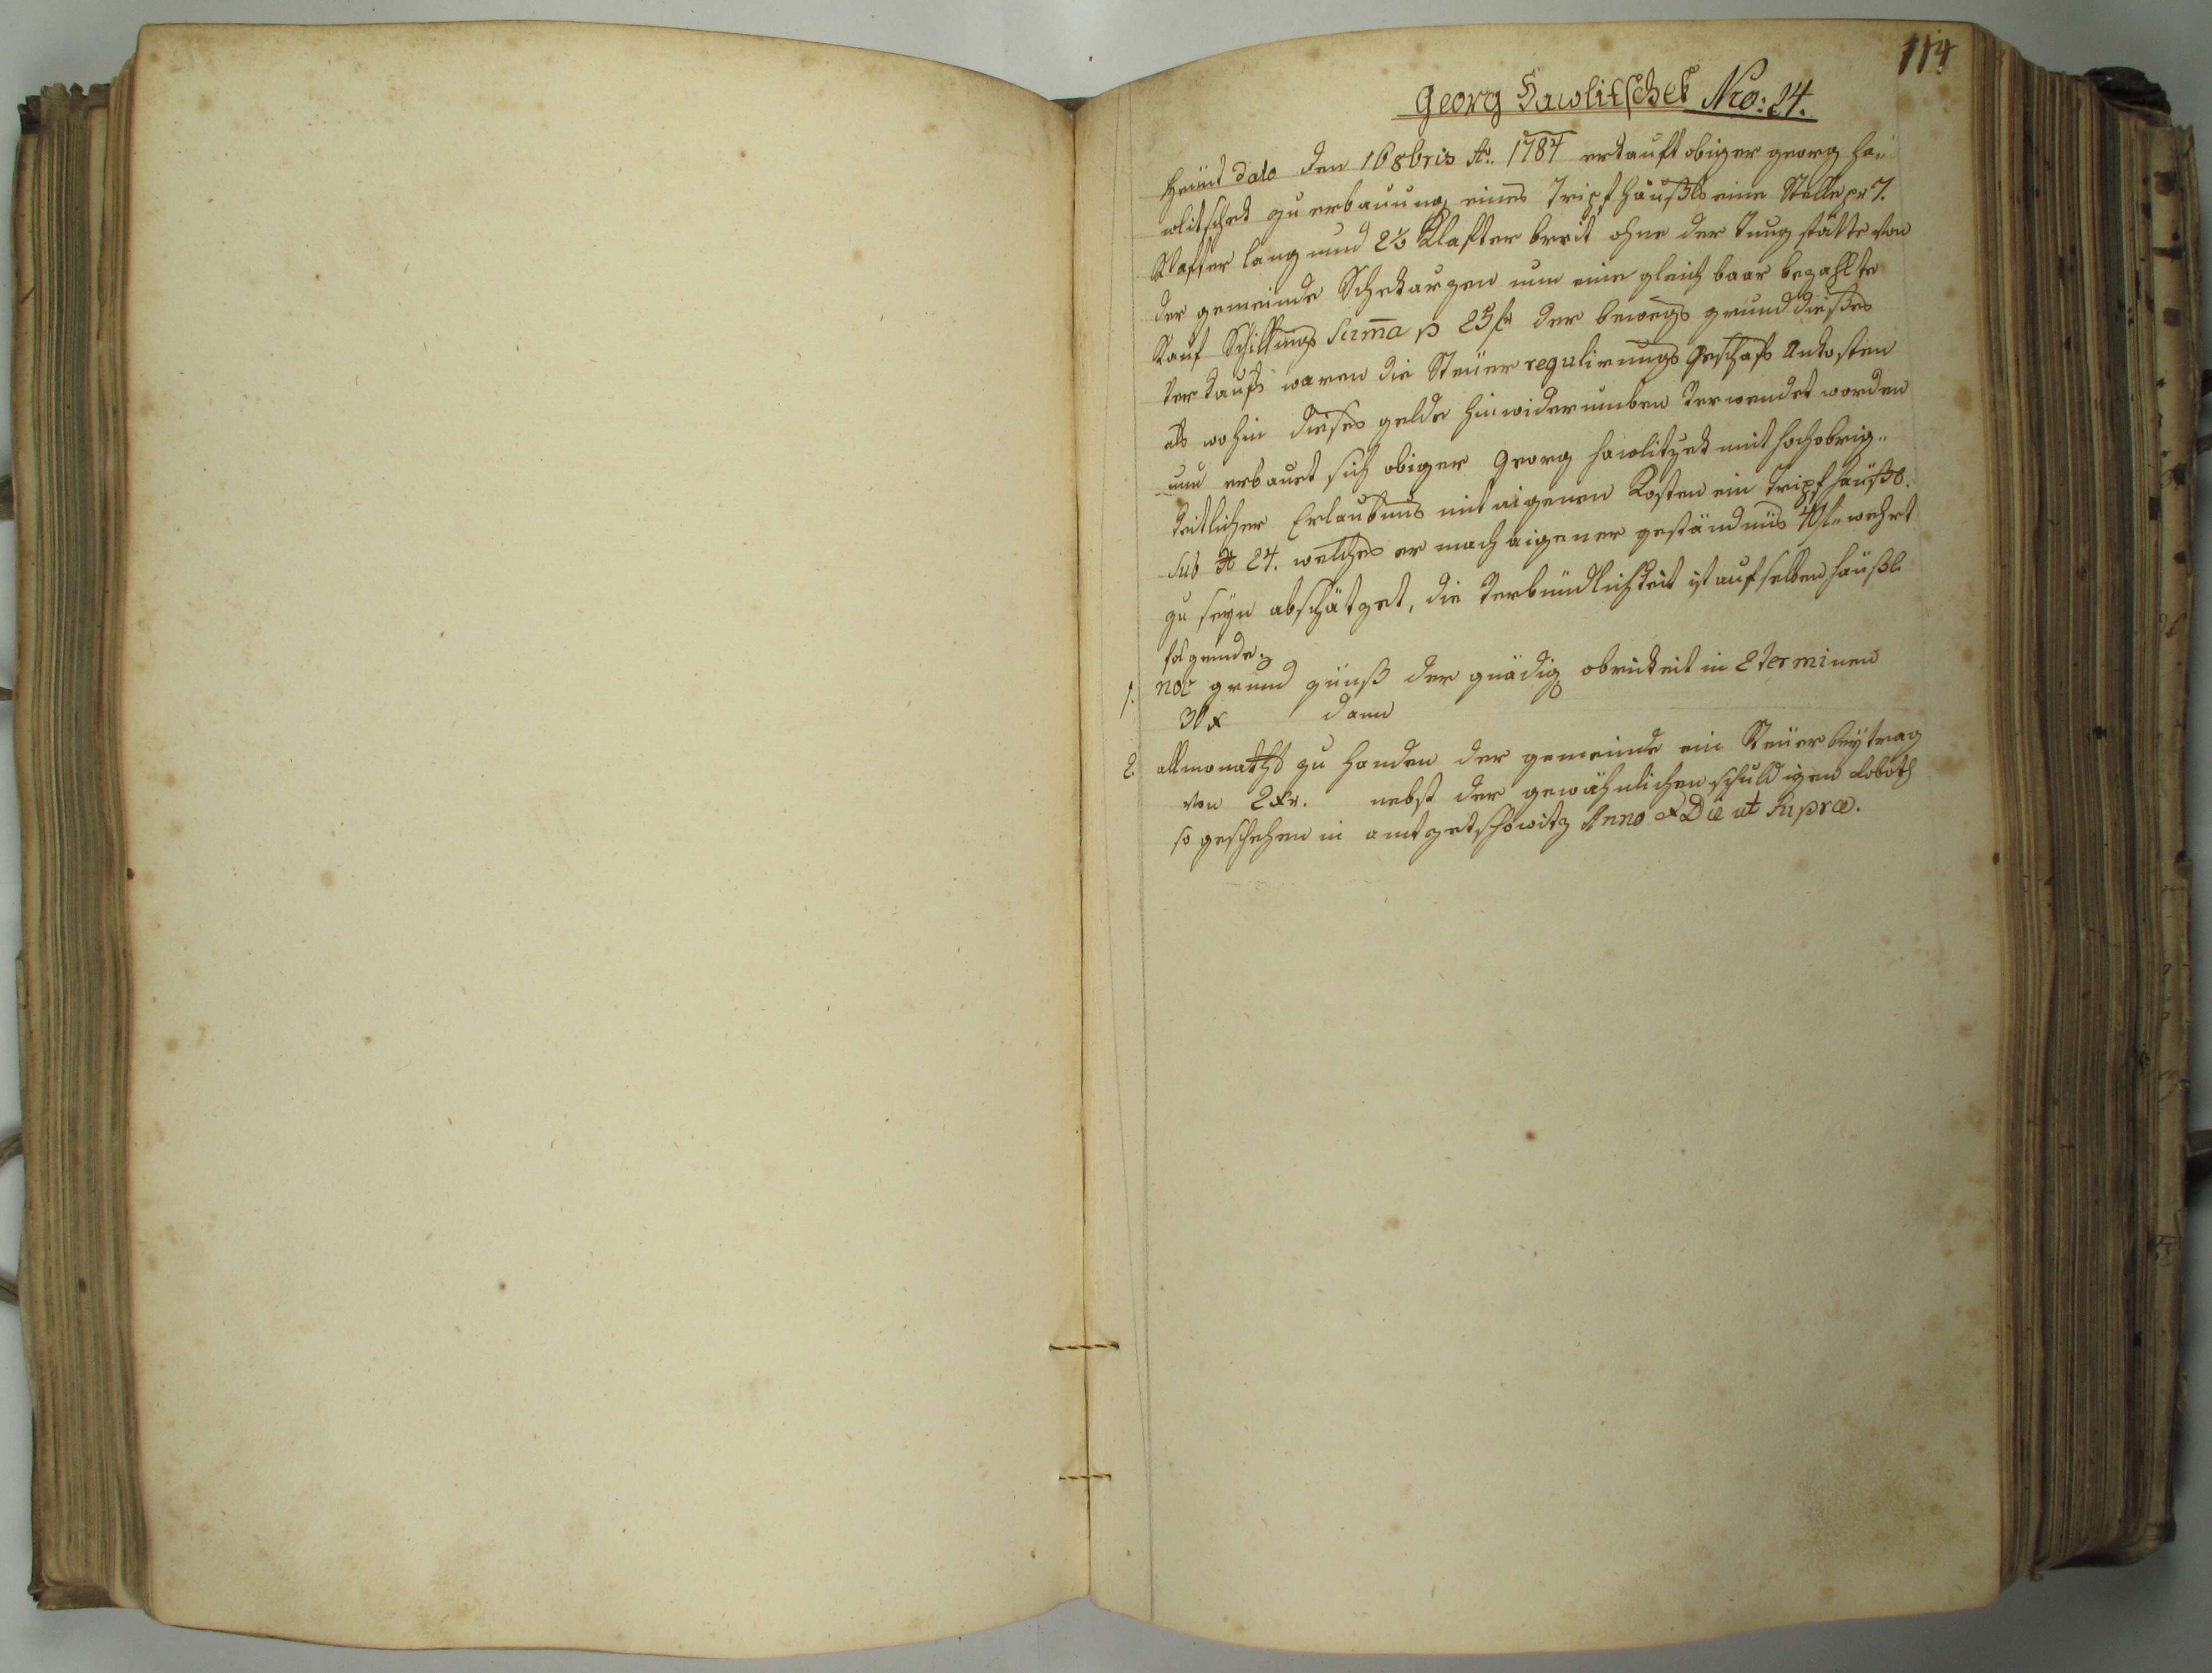 114
Georg Hawlitschek Nro: 24.
Heünt dato den 16 8bris Ao. 1787 erkauft obiger georg ha„
wlitschek zu erbauung eines Tripfhäußls eine Stelle pr 7.
Klafter lang und 2½ Klafter breit ohne der Tungstätte von
der gemeinde Schekarzen um eine gleich baar bezahlte
Kauf Schillings Suma p 25 f der bewegs grund dießes
Verkaufs waren die Steüer regulirungs Geschäfs Unkosten
als wohin dieses gelde hinwiderumben Verwendet worden
nun erbauet sich obiger Georg Hawlitzek mit hochobrig„
keitlicher Erlaubnus mit aigenen Kosten ein Tripfhäußl.
sub No 24. welches er nach aigener geständnüs 40 f wehrt
zu seyn abschätzet, die Verbündlichkeit ist auf selben häußl
folgende.
1. grund zünß der gnädig obrickeit in 2 terminen
30 x dann
2. allmonathl zu handen der gemeinde ein Steüer beytrag
von 2 xr. nebst der gewöhnlichen schuldigen Roboth
so geschehen in amt zetschowitz Anno & Die ut Supra.